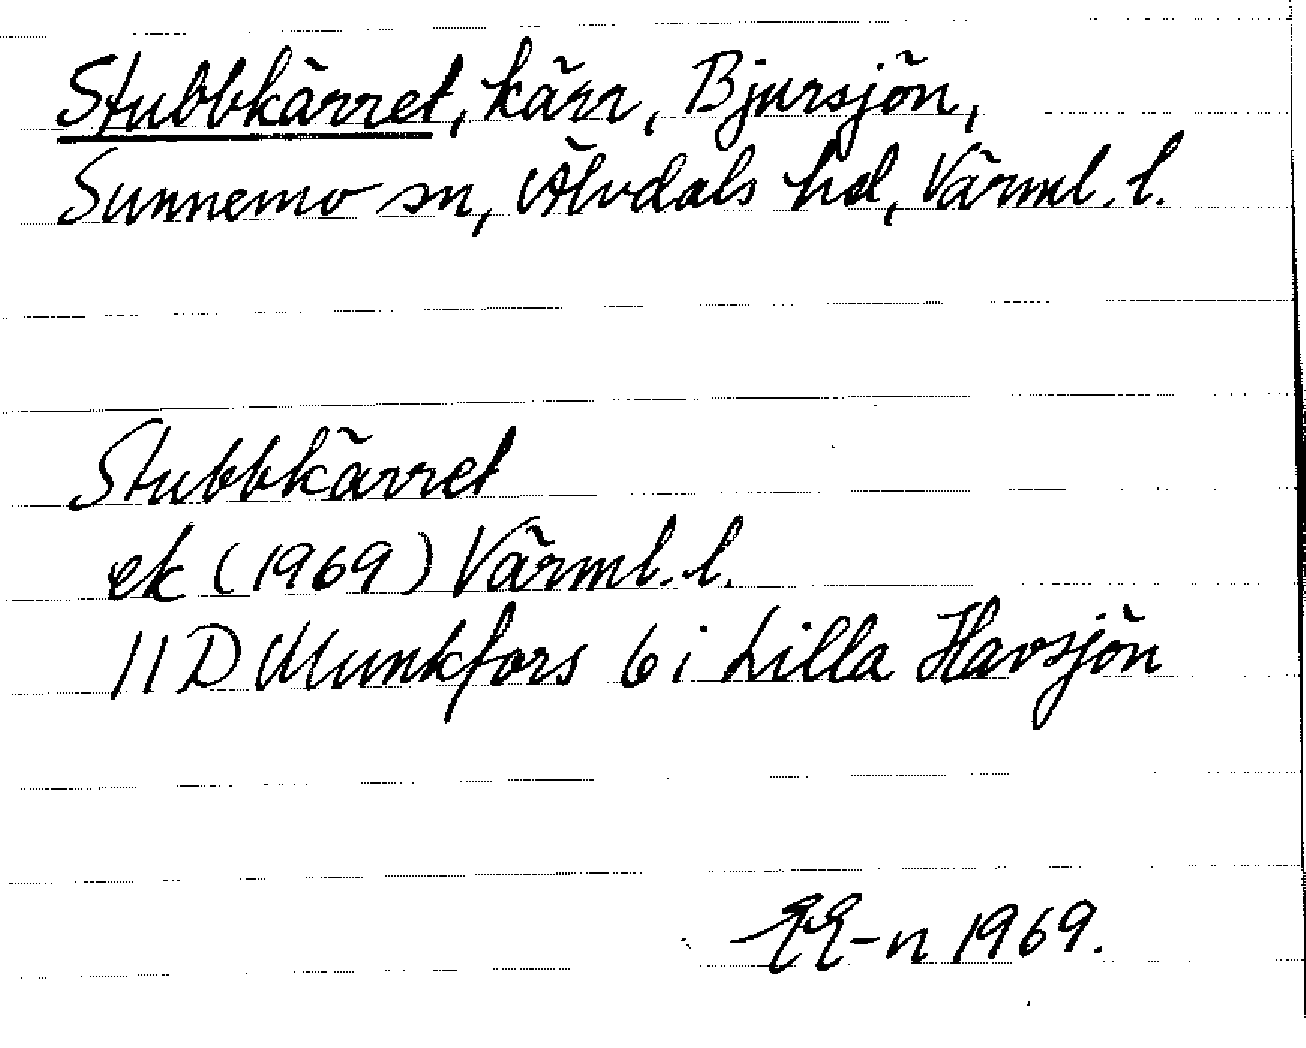 Stubbkärret, kärr, Bjursjön,
Sunnemo sn, Älvdals hd, Värml. l.
Stubbkärret
ek (1969) Värml. l.
11 D Munkfors 6 i Lilla Havsjön
EE-n 1969.